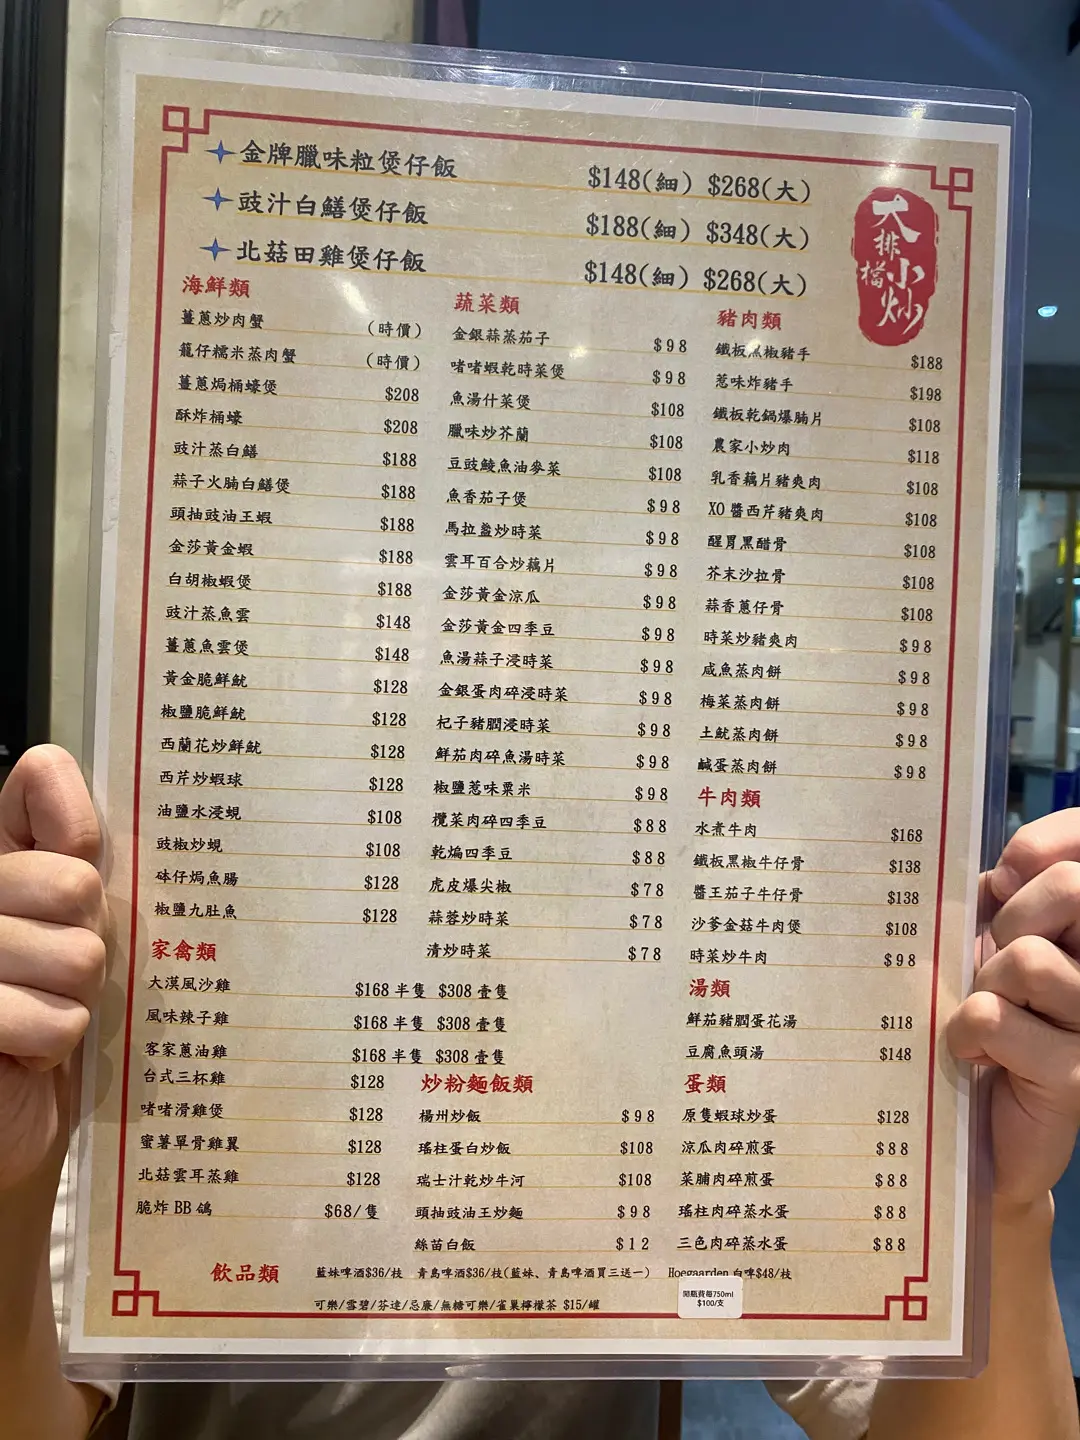 金牌臘味粒煲仔飯 $148(細) $268(大)
豉汁白鱔煲仔飯 $188(細) $348(大)
北菇田雞煲仔飯 $148(細) $268(大)
大排檔小炒
海鮮類
薑蔥炒肉蟹 (時價)
籠仔糯米蒸肉蟹 (時價)
薑蔥焗桶蠔煲 $208
酥炸桶蠔 $208
豉汁蒸白鱔 $188
蒜子火腩白鱔煲 $188
頭抽豉油王蝦 $188
金莎黃金蝦 $188
白胡椒蝦煲 $188
豉汁蒸魚雲 $148
薑蔥魚雲煲 $148
黃金脆鮮魷 $128
椒鹽脆鮮魷 $128
西蘭花炒鮮魷 $128
西芹炒蝦球 $128
油鹽水浸蜆 $108
豉椒炒蜆 $108
砵仔焗魚腸 $128
椒鹽九肚魚 $128
家禽類
大漠風沙雞 $168 半隻 $308 壹隻
風味辣子雞 $168 半隻 $308 壹隻
客家蔥油雞 $168 半隻 $308 壹隻
台式三杯雞 $128
啫啫滑雞煲 $128
蜜薯單骨雞翼 $128
北菇雲耳蒸雞 $128
脆炸 BB 鴿 $68/隻
蔬菜類
金銀蒜蒸茄子 $98
啫啫蝦乾時菜煲 $98
魚湯什菜煲 $108
臘味炒芥蘭 $108
豆豉鯪魚油麥菜 $108
魚香茄子煲 $98
馬拉盞炒時菜 $98
雲耳百合炒藕片 $98
金莎黃金涼瓜 $98
金莎黃金四季豆 $98
魚湯蒜子浸時菜 $98
金銀蛋肉碎浸時菜 $98
杞子豬膶浸時菜 $98
鮮茄肉碎魚湯時菜 $98
椒鹽惹味粟米 $98
欖菜肉碎四季豆 $88
乾煸四季豆 $88
虎皮爆尖椒 $78
蒜蓉炒時菜 $78
清炒時菜 $78
炒粉麵飯類
楊州炒飯 $98
瑤柱蛋白炒飯 $108
瑞士汁乾炒牛河 $108
頭抽豉油王炒麵 $98
絲苗白飯 $12
豬肉類
鐵板黑椒豬手 $188
惹味炸豬手 $198
鐵板乾鍋爆腩片 $108
農家小炒肉 $118
乳香藕片豬爽肉 $108
XO 醬西芹豬爽肉 $108
醒胃黑醋骨 $108
芥末沙拉骨 $108
蒜香蔥仔骨 $108
時菜炒豬爽肉 $98
咸魚蒸肉餅 $98
梅菜蒸肉餅 $98
土魷蒸肉餅 $98
鹹蛋蒸肉餅 $98
牛肉類
水煮牛肉 $168
鐵板黑椒牛仔骨 $138
醬王茄子牛仔骨 $138
沙爹金菇牛肉煲 $108
時菜炒牛肉 $98
湯類
鮮茄豬膶蛋花湯 $118
豆腐魚頭湯 $148
蛋類
原隻蝦球炒蛋 $128
涼瓜肉碎煎蛋 $88
菜脯肉碎煎蛋 $88
瑤柱肉碎蒸水蛋 $88
三色肉碎蒸水蛋 $88
飲品類 藍妹啤酒$36/枝 青島啤酒$36/枝(藍妹、青島啤酒買三送一) Hoegaarden 白啤$48/枝
可樂/雪碧/芬達/忌廉/無糖可樂/雀巢檸檬茶 $15/罐
開瓶費每750ml
$100/支